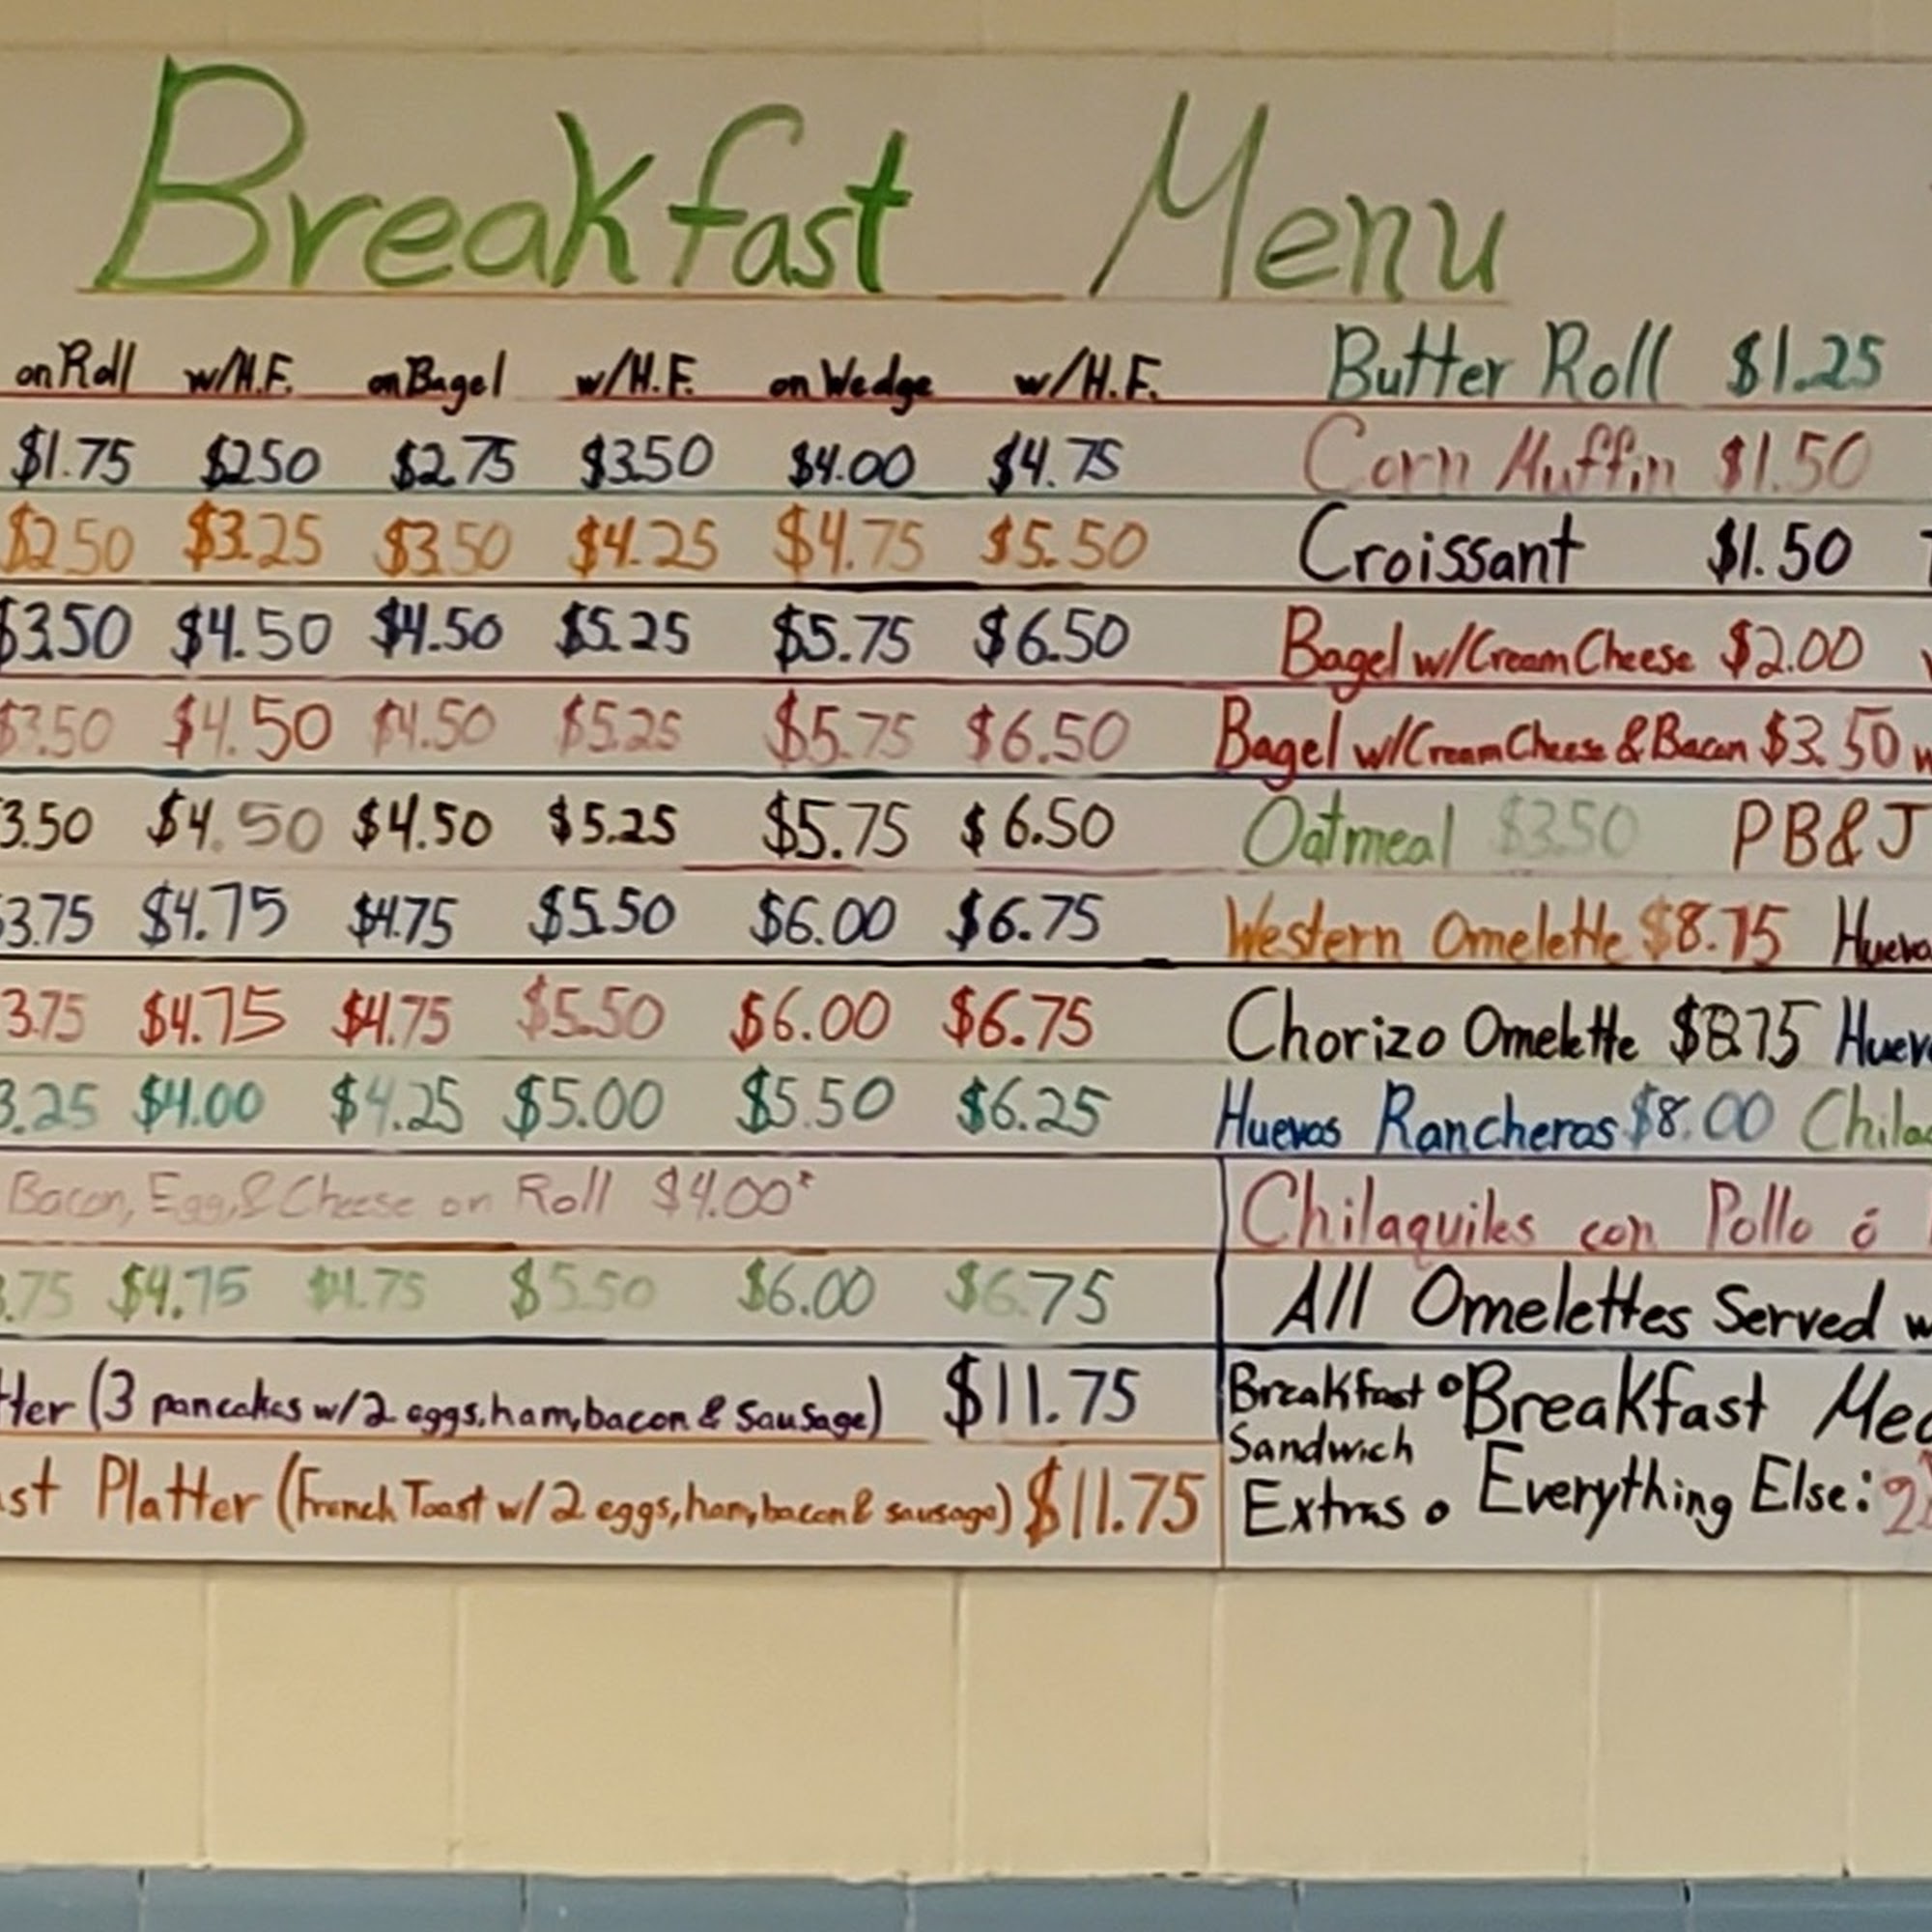 Breakfast Menu
on Roll w/H.F. on Bagel w/H.F. on Wedge w/H.F.
$1.75 $2.50 $2.75 $3.50 $4.00 $4.75
$2.50 $3.25 $3.50 $4.25 $4.75 $5.50
$3.50 $4.50 $4.50 $5.25 $5.75 $6.50
$3.50 $4.50 $4.50 $5.25 $5.75 $6.50
3.50 $4.50 $4.50 $5.25 $5.75 $6.50
3.75 $4.75 $4.75 $5.50 $6.00 $6.75
3.75 $4.75 $4.75 $5.50 $6.00 $6.75
3.25 $4.00 $4.25 $5.00 $5.50 $6.25
Bacon, Egg, & Cheese on Roll $4.00*
.75 $4.75 $4.75 $5.50 $6.00 $6.75
tter (3 pancakes w/2 eggs, ham, bacon & Sausage) $11.75
st Platter (French Toast w/2 eggs, ham, bacon & sausage) $11.75
Butter Roll $1.25
Corn Muffin $1.50
Croissant $1.50
Bagel w/Cream Cheese $2.00
Bagel w/Cream Cheese & Bacon $3.50 w
Oatmeal $3.50 PB&J
Western Omelette $8.75 Huevo
Chorizo Omelette $8.75 Huevo
Huevos Rancheros $8.00 Chila
Chilaquiles con Pollo ó
All Omelettes Served w
Breakfast Sandwich Extras
• Breakfast Mea
• Everything Else: 2